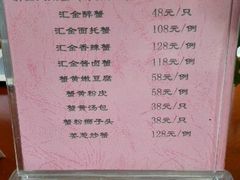 汇金醉蟹 48元/只
汇金面托蟹 108元/例
汇金香辣蟹 128元/例
汇金酱卤蟹 118元/例
蟹黄嫩豆腐 58元/例
蟹黄粉皮 58元/例
蟹黄汤包 38元/只
蟹粉狮子头 38元/只
姜葱炒蟹 128元/例